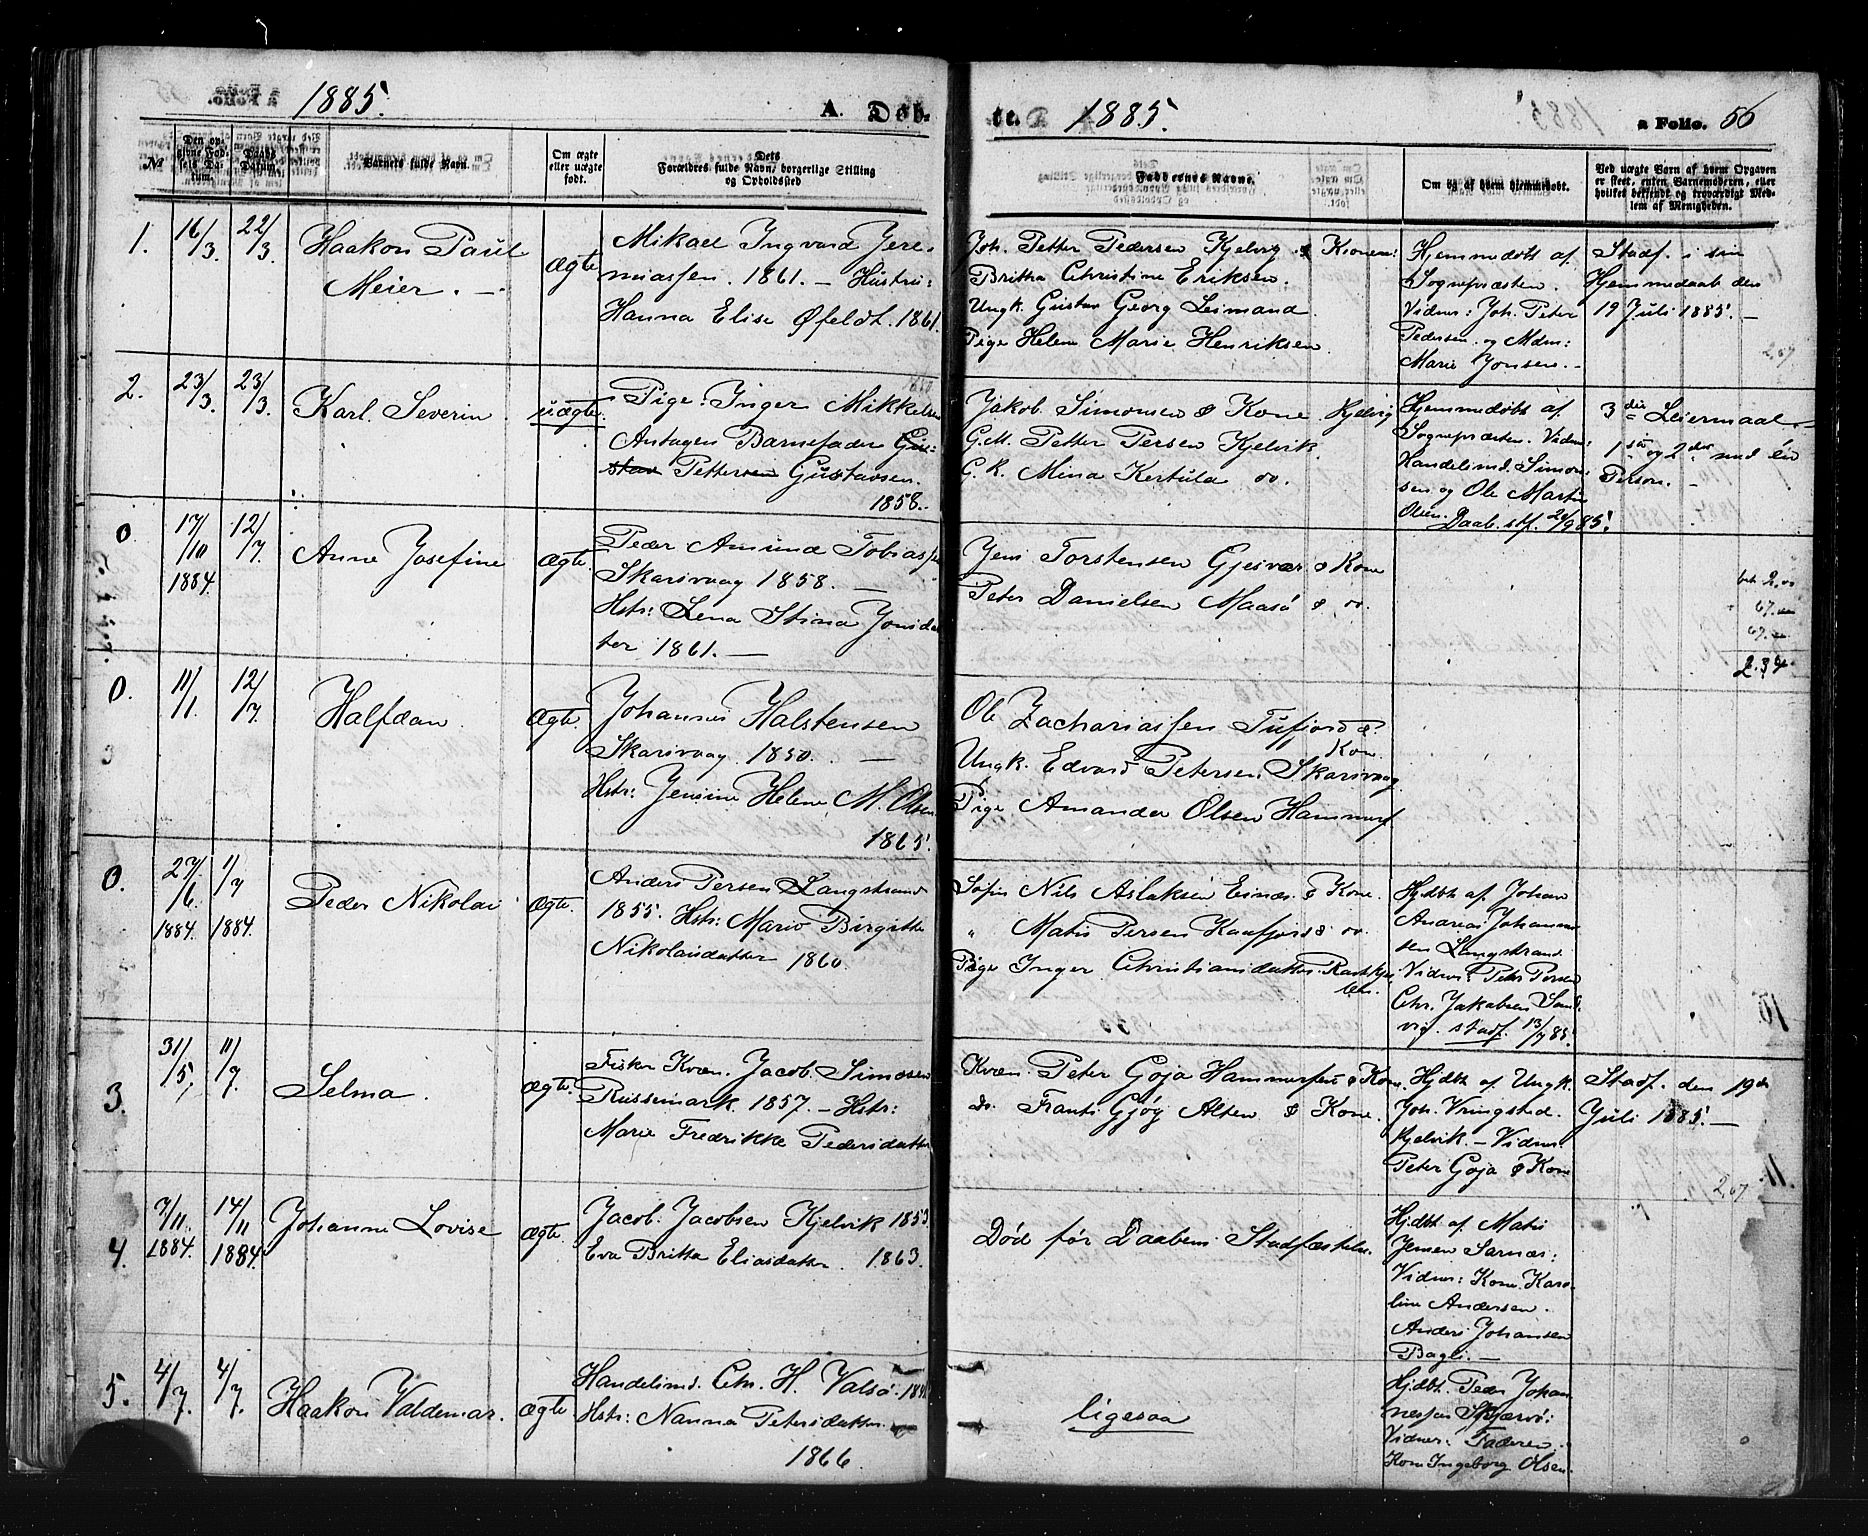 1885.
A. Døb-
te. 1885.
a Folio. 56
№
Den op-
givne Fød-
sels Da-
tum.
Daabs
Datum.
Barnets fulde Navn.
Om ægte
eller uægte
født.
Dets
Forældres fulde Navn, borgerlige Stilling
og Opholdssted
Faddernes Navne.
Om og af hvem hjemmedøbt.
Ved uægte Barn af hvem Opgaven
er skeet, enten Barnemoderen, eller
hvilket bekjendt og troværdigt Med-
lem af Menigheden.
1.
16/3.
22/3.
Haakon Paul
Meier. —
Ægte
Mikael Ingvard Jere-
miassen. 1861. — Hustru:
Hanna Elise Øfeldt. 1861.
Joh. Petter Pedersen Kjelvig & Konen:
Britha Christine Eriksen.
Ungk. Gustav Georg Leimand.
Pige Helene Marie Henriksen.
Hjemmedøbt af
Sognepræsten.
Vidner: Joh. Peter
Pedersen og Mdm:
Marie Jonsen. -
Stadf. i sin
Hjemmedaab den
19 Juli 1885. —
2,67
2.
23/3.
23/3.
Karl Severin
uægte
Pige: Inger Mikkelsen
Antagen Barnefader Gu-
stav Pettersen Gustavsen.
1858.
Jakob Simonsen & Kone Kjelvig
G.M. Petter Persen Kjelvik.
G.K. Mina Kertula do.
Hjemmedøbt af
Sognepræsten. Vidn:
Handelsmd. Simon-
sen og Ole Martin
Olsen. Daab. stf. 20/9 85.
3die Leiermaal.
1ste og 2det med én
Person.
0.
17/10
1884.
12/7.
Anne Josefine
Ægte.
Peder Amund Tobiassen
Skarsvaag 1858. —
Hstr: Lena Stina Jonsdat-
ter 1861. —
Jens Torstensen Gjesvær & Kone
Peter Danielsen Maasö & do.
bet. 2,00
67.
67.
2.34
0.
11/1.
12/7.
Halfdan.
Ægte.
Johannes Halstensen
Skarsvaag. 1850. —
Hstr: Jensine Helene M. Olsen
1865.
Ole Zachariassen Tufjord &
Kone.
Ungk. Edvard Petersen Skarsvaag
Pige Amanda Olsen Hammerf
0.
27/6.
1884.
1/7
1884.
Peder Nikolai
Ægte.
Anders Persen Langstrand
1855. Hstr: Marie Birgitte
Nikolaisdatter 1860.
Nils Aslaksen Einæs. & Kone.
" Matis Persen Kaafjord & do.
Pige Inger Christiansdatter
Hjdbt af Johan
Andreas Johannes-
sen Langstrand.
Vidner: Peter Persen
Chr. Jakobsen Sand-
vig. stadf. 13/7 85.
3.
31/5.
11/7.
Selma.
Ægte.
Fisker Kvæn. Jacob Simonsen
Russemark 1857. — Hstr:
Marie Fredrikke Pedersdatter
Kvæn. Peter Goja Hammerfest & Kone.
do. Frants Gjög Alten & Kone.
Hjdbt af Ungk.
Joh. Vringsted.
Kjelvik. — Vidner
Peter Goja & Kone
Stadf. den 19de
Juli 1885. —
2,67
4.
7/11.
1884.
14/11
1884.
Johanne Lovise
Ægte.
Jacob Jacobsen Kjelvik 1853.
Eva Britta Eliasdatter. 1863.
Død før Daabens Stadfæstelse.
Hjdbt af Matis
Jensen Sarnæs:
Vidner: Kone Karo-
line Andersen.
Anders Johansen
Bagli. —
5.
4/7.
4/7.
Haakon Valdemar.
Ægte
Handelsmd. Chr. H. Valsö.
Hstr: Nanna Petersdatter.
1866
ligesaa
Hjdbt. Peder Johan-
nessen Skjærvö:
Vidner: Faderen.
Kone Ingeborg Olsen.